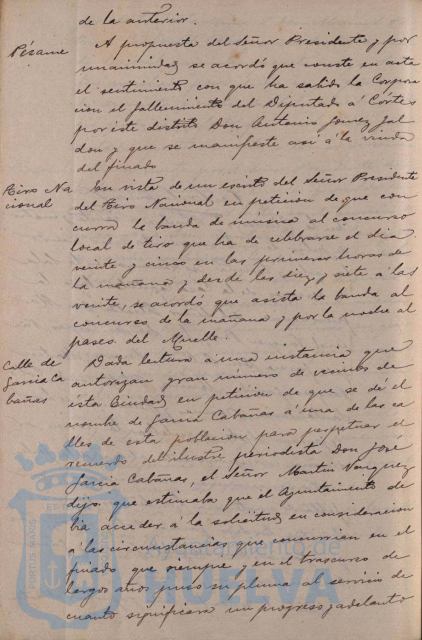 de la anterior.
Pésame
A propuesta del Señor Presidente y por
unanimidad se acordó que conste en acta
el sentimiento con que ha sabido la Corpora
cion el fallecimiento del Diputado á Cortes
por este distrito Don Antonio Gomez Jal
don y que se manifieste asi á la viuda
del finado
Tiro Na
cional
En vista de un escrito del Señor Presidente
del Tiro Nacional en peticion de que con
curra la banda de música al concurso
local de tiro que ha de celebrarse el dia
veinte y cinco en las primeras horas de
la mañana y desde las diez y siete á las
veinte, se acordó que asista la banda al
concurso de la mañana y por la noche al
paseo del Muelle.
Calle de
Garcia Ca
bañas
Dada lectura á una instancia que
autorizan gran número de vecinos de
ésta Ciudad en peticion de que se dé el
nombre de Garcia Cabañas á una de las ca
lles de esta poblacion para perpetuar el
recuerdo del ilustre periodista Don José
Garcia Cabañas, el Señor Martin Vazquez
dijo que estimaba que el Ayuntamiento de
bia acceder á la solicitud en consideracion
á las circunstancias que concurrian en el
finado que siempre y en el trascurso de
largos años puso su pluma al servicio de
cuanto significara un progreso y adelanto
Ayuntamiento de
HUELVA
PORTUS MARIS